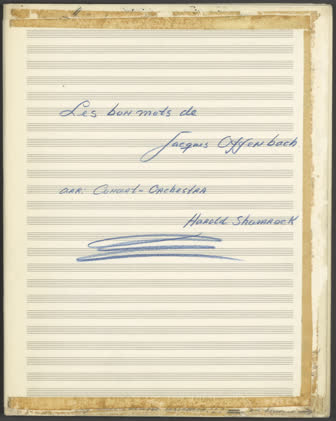 Les bon mots de
Jacques Offenbach
arr. Concert-Orchestra
Harold Shamrock